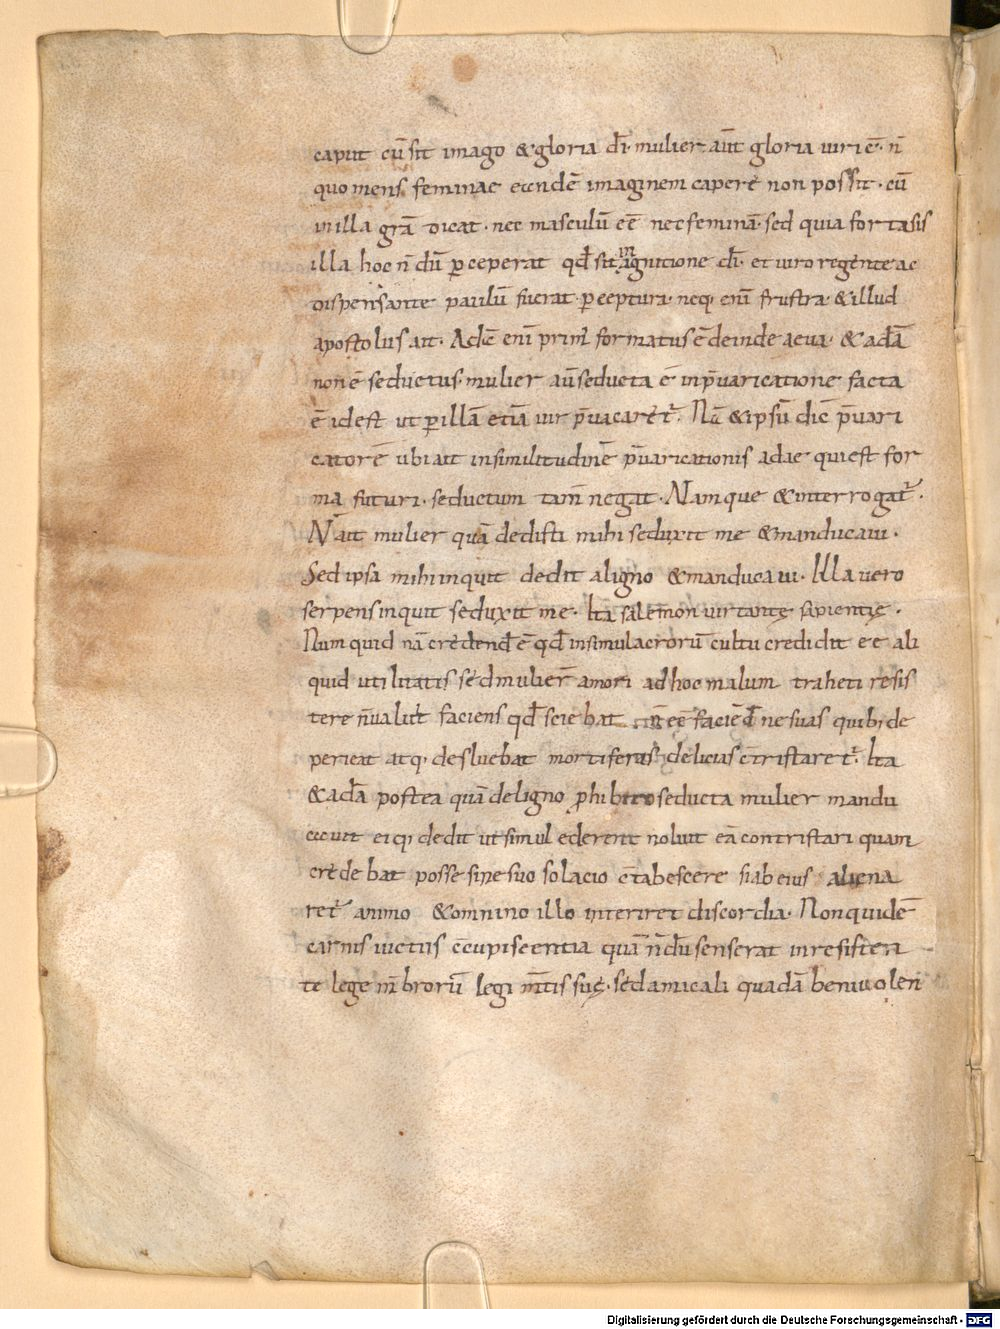 caput cū sit imago &gloria dī· mulier aūt gloria uiri ē· n̄
quo mens feminae eundē imaginem capere non possit· cū
in illa grā dicat· nec masculū eē nec feminā· sed quia fortasis
illa hoc n̄ dū ꝑceperat qđ sit in agnitione dī· et uiro regente ac
dispensante paulū fuerat ꝑceptura· neq; enī frustra &illud
apostolus ait· Adā enī prim̄ formatus ē deinde aeua· &adā
non ē seductus· mulier aū seducta ē in p̄uaricatione facta
ē id est ut ꝑ illā etiā uir p̄uacaret᷑· Nā &ipsū dic̄ p̄uari
catorē ubi ait in similitudinē p̄uaricationis adae qui est for
ma futuri· seductum tam̄ negat· Namque &interrogat᷑·
N ait mulier quā dedisti mihi seduxit me &manducaui·
Sed ipsa mihi inquit dedit a ligno &manducaui· Illa uero
serpens inquit seduxit me· Ita salemon uir tantę sapientię·
Num quid nā credend̄ ē qđ in simulacrorū cultu credidit eē ali
quid utilitatis sed mulierū amori ad hoc malum traheti resis
tere n̄ ualuit faciens qđ sciebat n̄ eē faciēd̄ ne suas quibꝫ de
perieat atq; desluebat mortiferas delicias c̄tristaret᷑· Ita
&adā postea quā de ligno ꝓhibito seducta mulier mandu
cauit eiq; dedit ut simul ederent noluit eā contristari quam
credebat posse sine suo solacio c̄tabescere si ab eius aliena
ret᷑ animo &omnino illo interiret discordia· Non quidē
carnis uictus c̄cupiscentia quā n̄dū senserat in resisten
te lege m̄brorū legi m̄tis suę· sed amicali quadā beniuolen
Digitalisierung gefördert durch die Deutsche Forschungsgemeinschaft - DFG